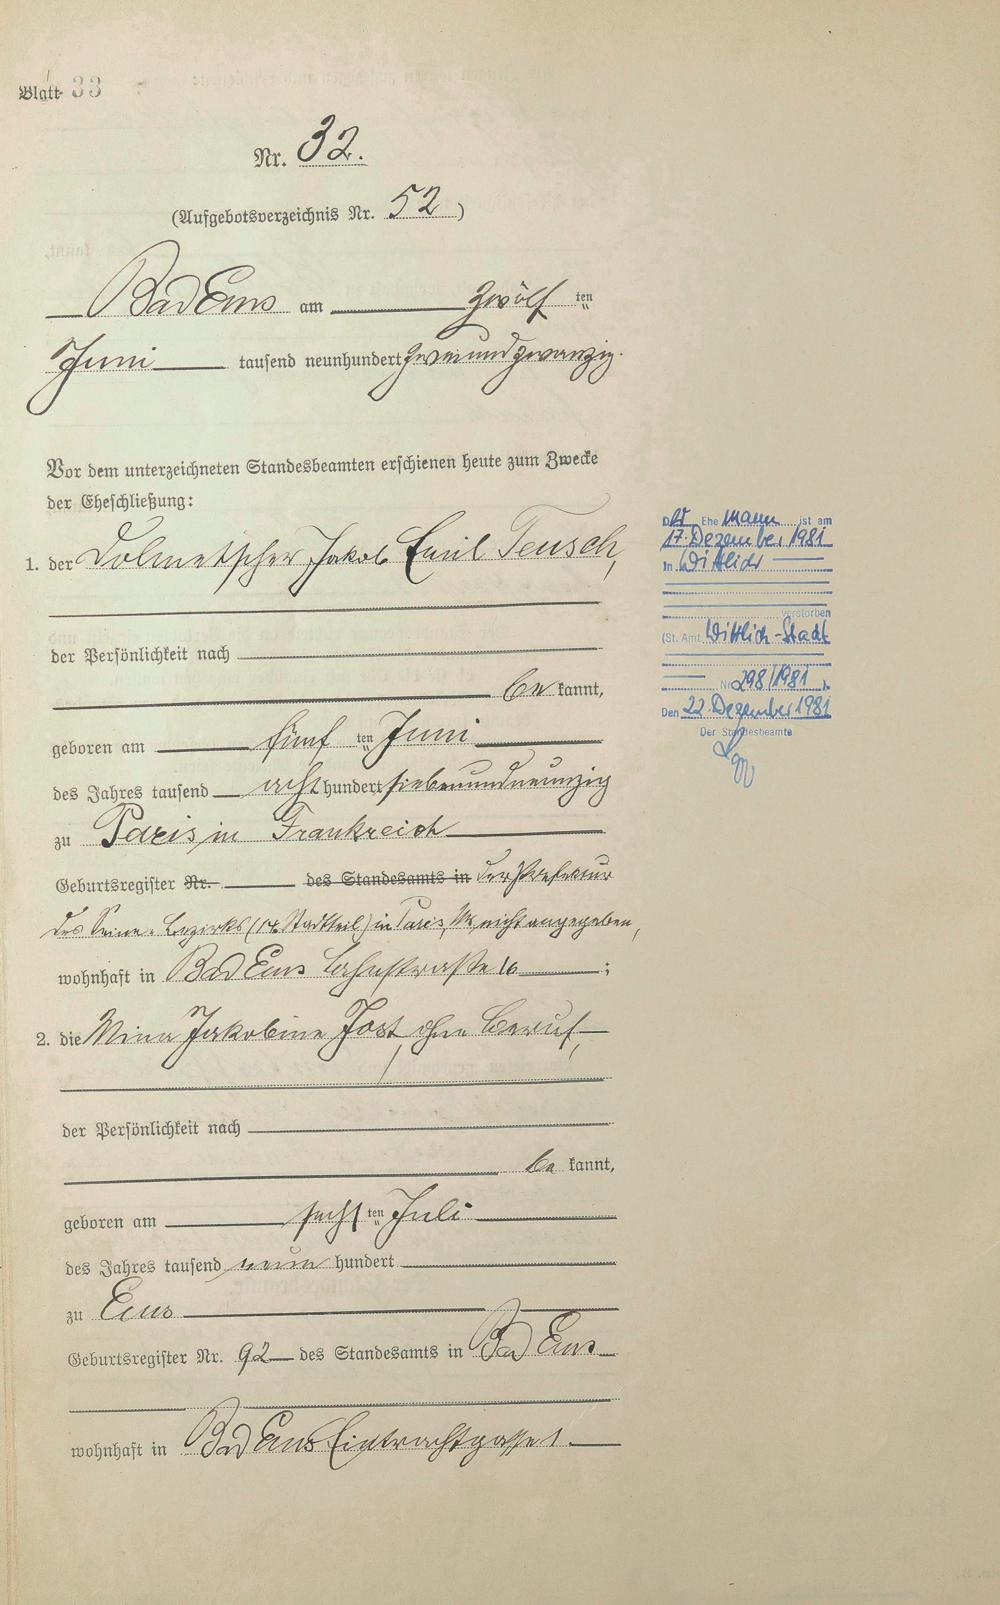 Blatt 33
Nr. 32.
(Aufgebotsverzeichnis Nr. 52)
Bad Ems am zwölf ten
Juni tausend neunhundert zweiundzwanzig.
Vor dem unterzeichneten Standesbeamten erschienen heute zum Zwecke
der Eheschließung:
1. der Dolmetscher Jakob Emil Teusch,
der Persönlichkeit nach
be kannt,
geboren am fünf ten Juni
des Jahres tausend acht hundert siebenundneunzig
zu Paris in Frankreich
Geburtsregister Nr. des Standesamts in der Präfektur
des Seine-Bezirks (14. Stadtteil) in Paris, Nr. nicht angegeben,
wohnhaft in Bad Ems Lahnstraße 16 ;
2. die Mina Jakobine Jost, ohne Beruf,
der Persönlichkeit nach
be kannt,
geboren am sechs ten Juli
des Jahres tausend neun hundert
zu Ems
Geburtsregister Nr. 92 des Standesamts in Bad Ems
wohnhaft in Bad Ems Eintrachtgasse 1.
Der Ehe mann ist am
17. Dezember 1981
in Wittlich
verstorben
(St. Amt Wittlich-Stadt
Nr. 298/1981 ).
Den 22. Dezember 1981
Der Standesbeamte